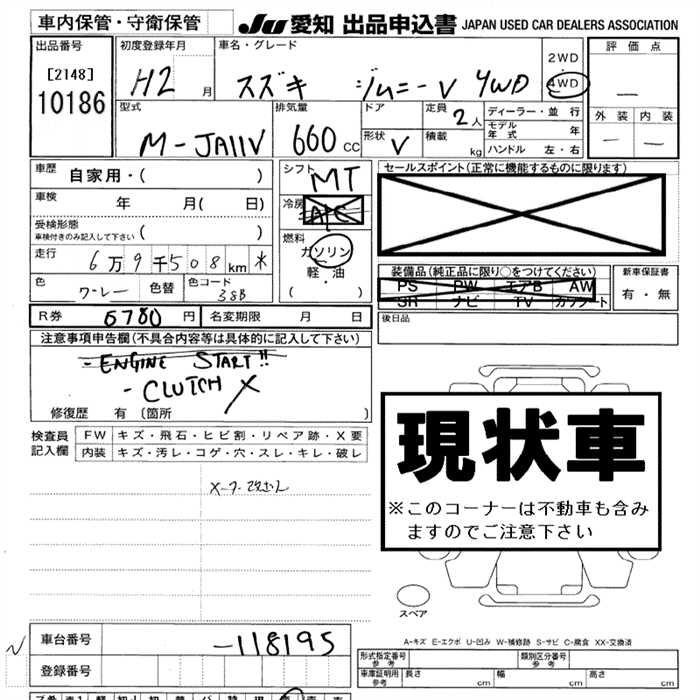 車内保管・守衛保管
JU 愛知 出品申込書 JAPAN USED CAR DEALERS ASSOCIATION
出品番号
[2148]
10186
初度登録年月
H2 月
車名・グレード
スズキ ジムニーV 4WD
2WD
4WD
評価点
―
外装 内装
― ―
型式
M-JA11V
排気量
660 CC
ドア
形状 V
定員 2人
積載 kg
ディーラー・並行
モデル年式 年
ハンドル 左・右
車歴
自家用・( )
車検
年 月( 日)
受検形態
車検付きのみ記入して下さい ( )
走行
6万9千508km ※
色
グレー
色替
色コード
シフト
MT
冷房
A/C
燃料
ガソリン
軽・油
( )
セールスポイント(正常に機能するものに限ります)
装備品(純正品に限り○をつけてください)
PS PW エアB AW
SR ナビ TV カワシート
新車保証書
有・無
後日品
R券 6780円
名変期限 月 日
注意事項申告欄(不具合内容等は具体的に記入して下さい)
- ENGINE START!!
- CLUTCH X
修復歴 有 〔箇所 〕
検査員記入欄
FW キズ・飛石・ヒビ割・リペア跡・X要
内装 キズ・汚レ・コゲ・穴・スレ・キレ・破レ
現状車
※このコーナーは不動車も含み
ますのでご注意下さい
スペア
A-キズ E-エクボ U-凹み W-補修跡 S-サビ C-腐食 XX-交換済
車台番号
-118195
登録番号
形式指定番号
参考
類別区分番号
参考
車庫証明用
参考
長さ cm
幅 cm
高さ cm